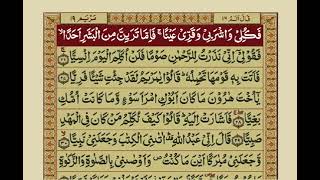 قال الم ١٦
مريم ١٩
فَكُلِيْ وَاشْرَبِيْ وَقَرِّيْ عَيْنًا ۚ فَاِمَّا تَرَيِنَّ مِنَ الْبَشَرِ اَحَدًا ۙ
فَقُوْلِيْٓ اِنِّيْ نَذَرْتُ لِلرَّحْمٰنِ صَوْمًا فَلَنْ اُكَلِّمَ الْيَوْمَ اِنْسِيًّا ﴿٢٦﴾
فَاَتَتْ بِهٖ قَوْمَهَا تَحْمِلُهٗ ؕ قَالُوْا يٰمَرْيَمُ لَقَدْ جِئْتِ شَيْـًٔا فَرِيًّا ﴿٢٧﴾
يٰٓاُخْتَ هٰرُوْنَ مَا كَانَ اَبُوْكِ امْرَاَ سَوْءٍ وَّمَا كَانَتْ اُمُّكِ
بَغِيًّا ﴿٢٨﴾ فَاَشَارَتْ اِلَيْهِ ؕ قَالُوْا كَيْفَ نُكَلِّمُ مَنْ كَانَ فِي الْمَهْدِ
صَبِيًّا ﴿٢٩﴾ قَالَ اِنِّيْ عَبْدُ اللّٰهِ ؕ اٰتٰىنِيَ الْكِتٰبَ وَجَعَلَنِيْ نَبِيًّا ﴿٣٠﴾
وَّجَعَلَنِيْ مُبٰرَكًا اَيْنَ مَا كُنْتُ ۪ وَاَوْصٰنِيْ بِالصَّلٰوةِ وَالزَّكٰوةِ